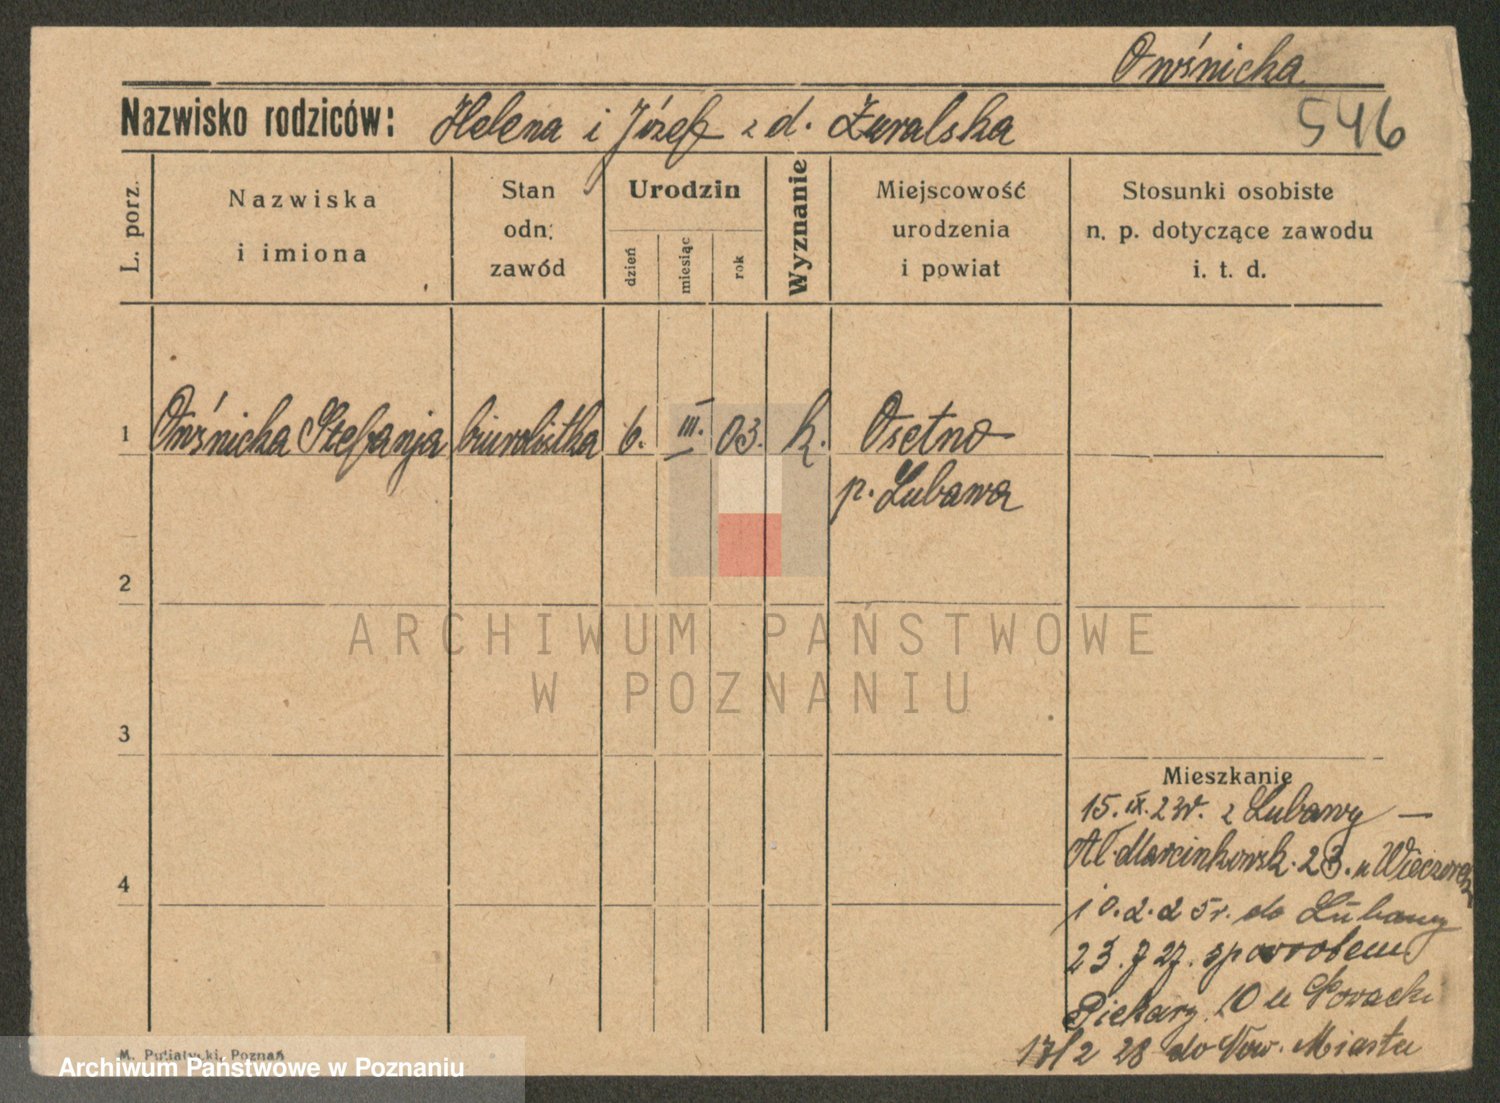 Owśnicka
Nazwisko rodziców: Helena i Józef z d. Żuralska
546
L. porz.
Nazwiska
i imiona
Stan
odn.
zawód
Urodzin
dzień
miesiąc
rok
Wyznanie
Miejscowość
urodzenia
i powiat
Stosunki osobiste
n. p. dotyczące zawodu
i. t. d.
1 Owśnicka Stefanja biuralistka 6. III. 03. k. Osetno
p. Lubawa
2
3
4
Mieszkanie
15. IX. 23r. z Lubawy —
Al. Marcinkowsk. 23. u Wieczorek
10.2.25r. do Lubawy
23. 7 27. spowrotem
Piekary 10 u Nowack
17/2 28 do Now. Miasta
M. Putiatycki, Poznań
ARCHIWUM PAŃSTWOWE
W POZNANIU
Archiwum Państwowe w Poznaniu